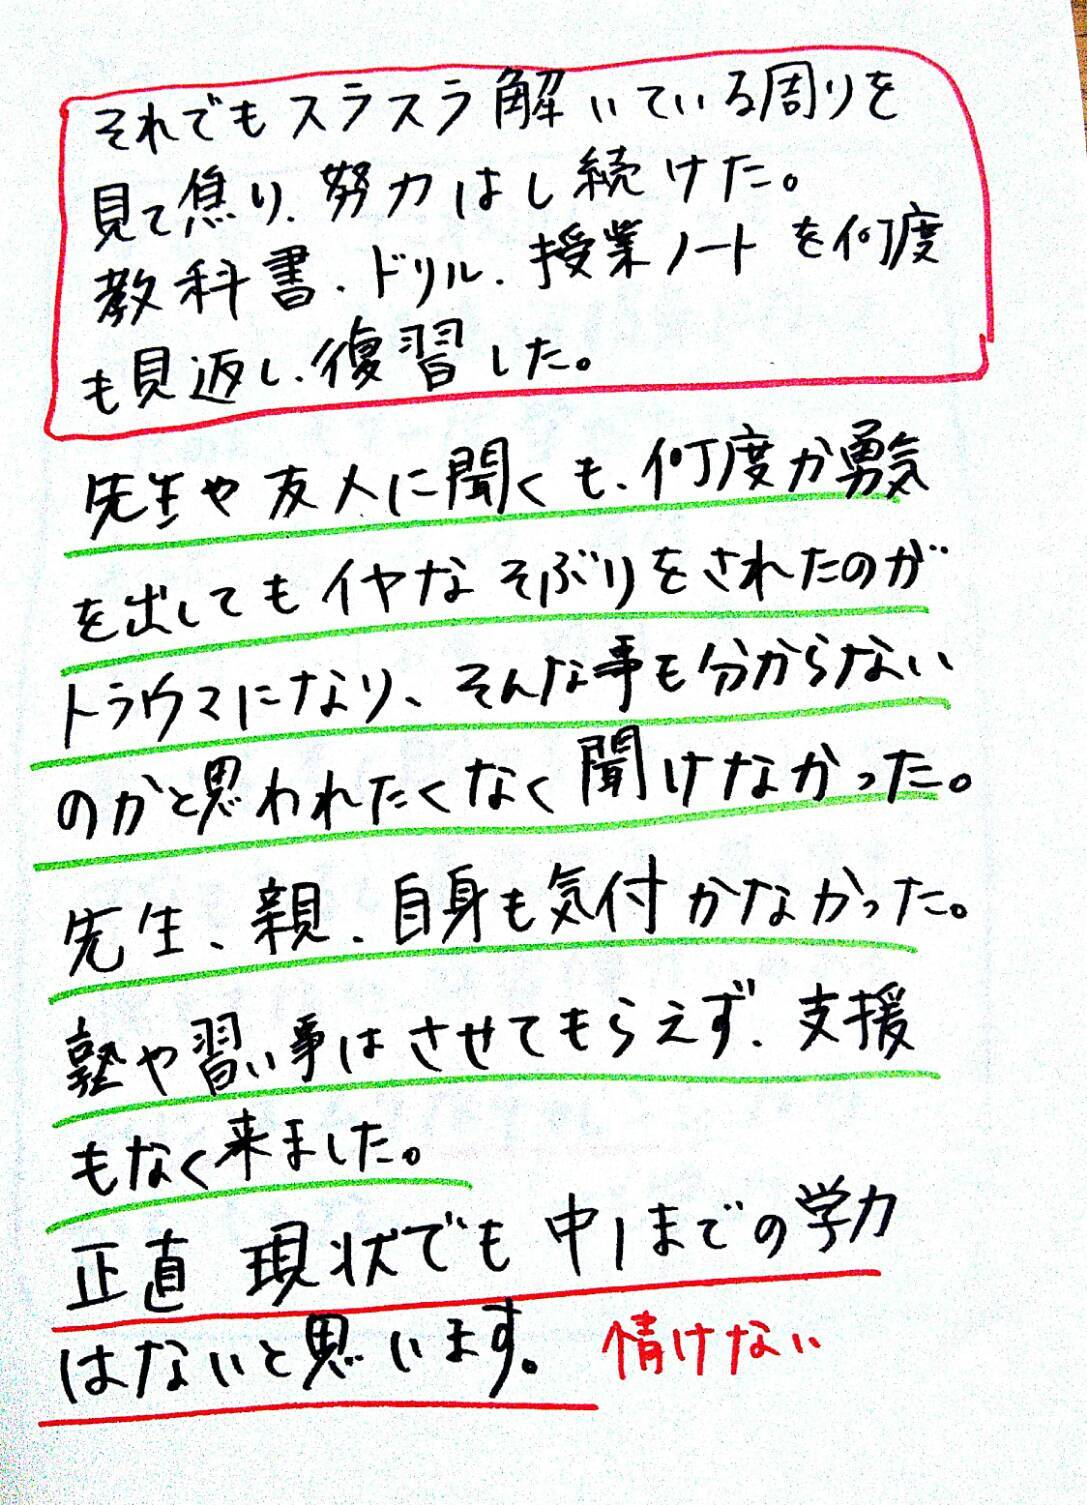 それでもスラスラ解いている周りを
見て焦り、努力はし続けた。
教科書、ドリル、授業ノートを何度
も見返し、復習した。
先生や友人に聞くも、何度か勇気
を出してもイヤなそぶりをされたのが
トラウマになり、そんな事も分からない
のかと思われたくなく聞けなかった。
先生、親、自身も気付かなかった。
塾や習い事はさせてもらえず、支援
もなく来ました。
正直 現状でも中1までの学力
はないと思います。 情けない